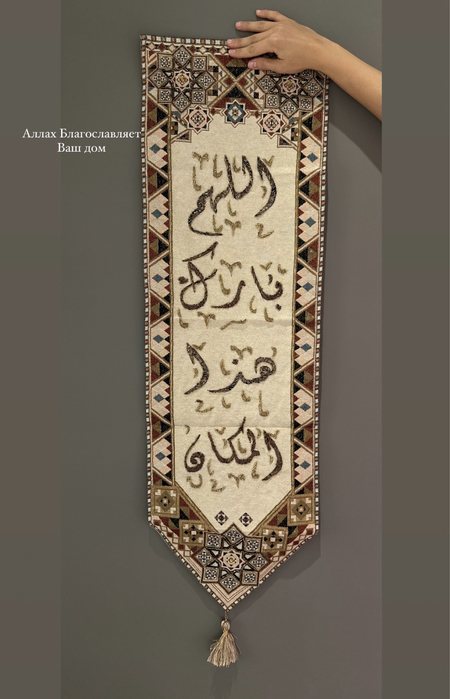 Аллах Благославляет
Ваш дом
اللهم
بارك
هذا
المكان